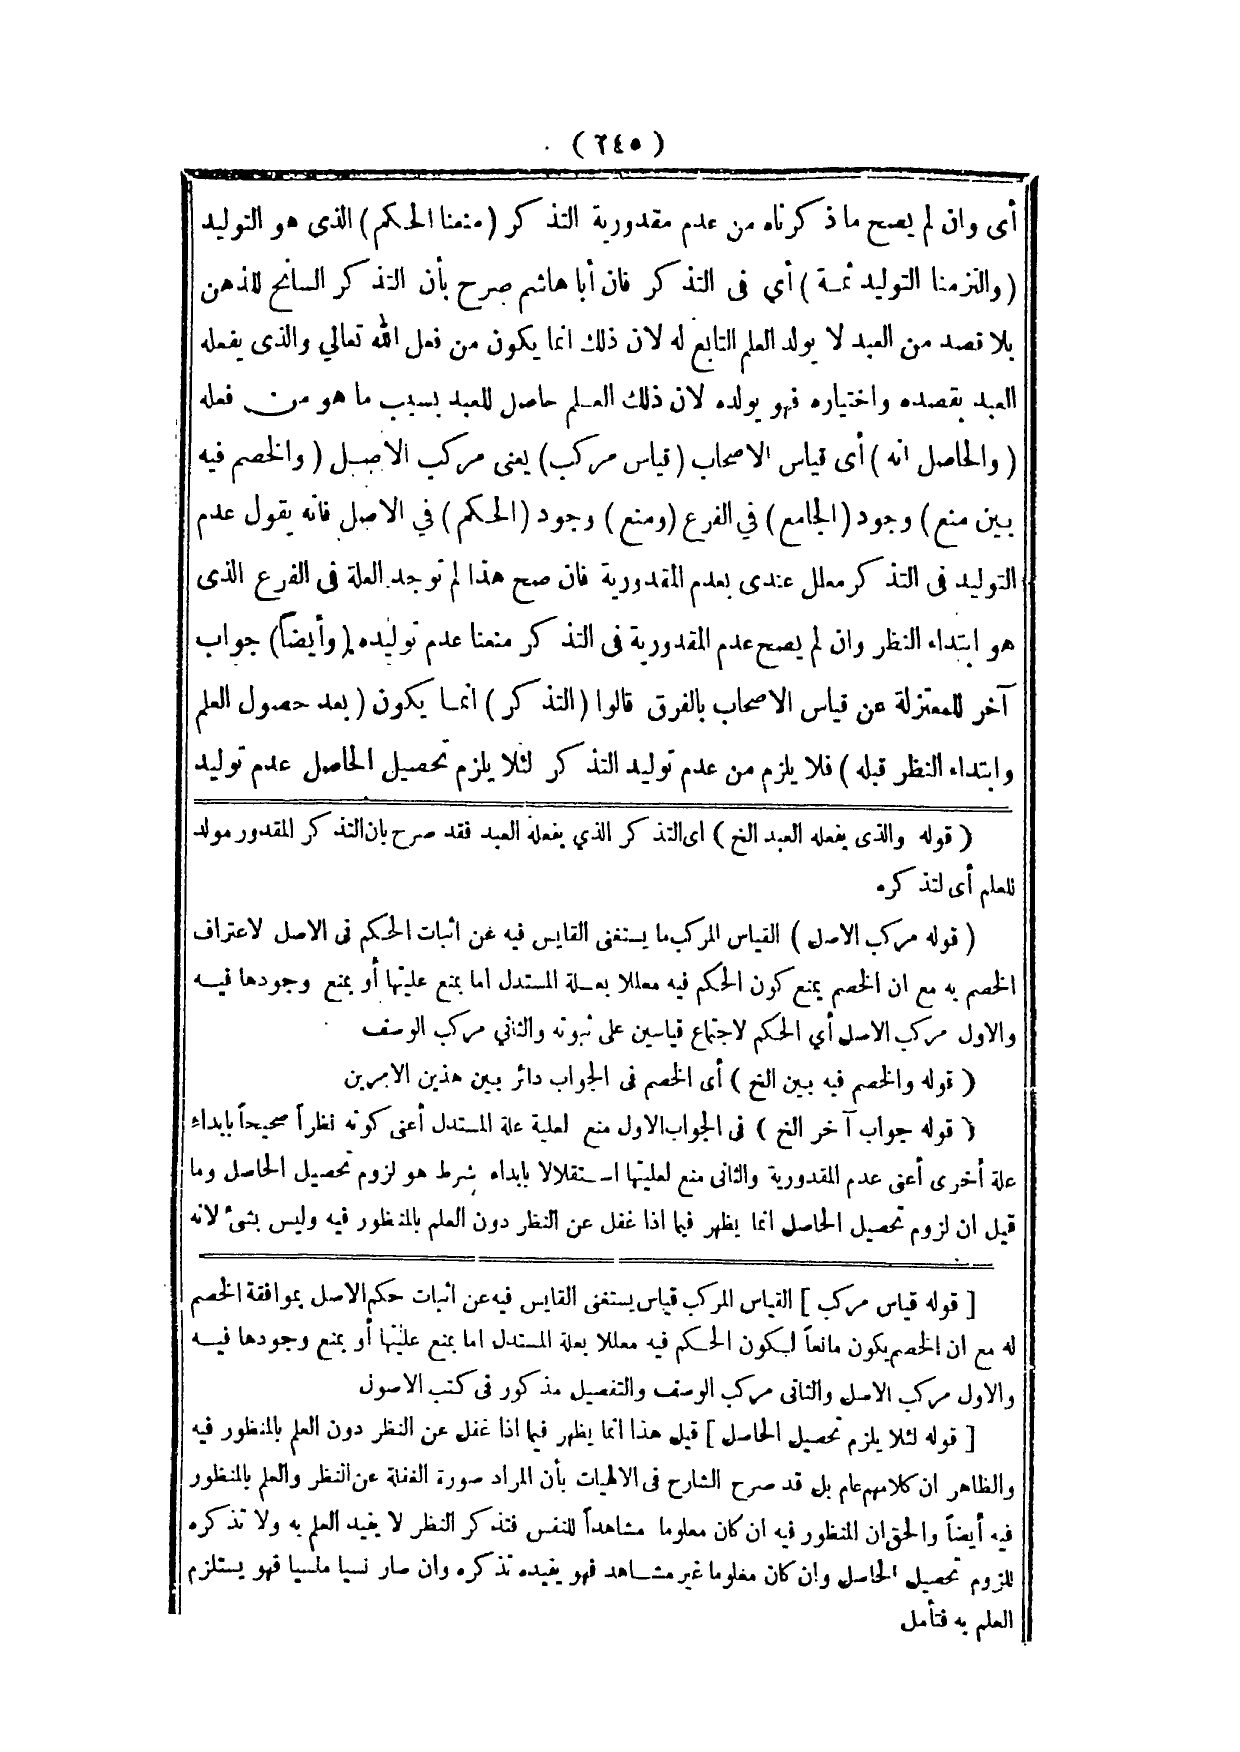 ( ٢٤٥ )
أى وان لم يصح ما ذكرناه من عدم مقدورية التذكر (منعنا الحكم) الذى هو التوليد
(والتزمنا التوليد ثمة) أي فى التذكر فان أبا هاشم صرح بأن التذكر السانح للذهن
بلا قصد من العبد لا يولد العلم التابع له لان ذلك انما يكون من فعل الله تعالي والذى يفعله
العبد بقصده واختياره فهو يولده لان ذلك العلم حاصل للعبد بسبب ما هو من فعله
(والحاصل انه) أى قياس الاصحاب (قياس مركب) يعنى مركب الاصل (والخصم فيه
بين منع) وجود (الجامع) في الفرع (ومنع) وجود (الحكم) في الاصل فانه يقول عدم
التوليد فى التذكر معلل عندى بعدم المقدورية فان صح هذا لم توجد العلة فى الفرع الذى
هو ابتداء النظر وان لم يصح عدم المقدورية فى التذكر منعنا عدم توليده (وأيضاً) جواب
آخر للمعتزلة عن قياس الاصحاب بالفرق قالوا (التذكر) انما يكون (بعد حصول العلم
وابتداء النظر قبله) فلا يلزم من عدم توليد التذكر لئلا يلزم تحصيل الحاصل عدم توليد
( قوله والذى يفعله العبد الخ ) اى التذكر الذي يفعله العبد فقد صرح بان التذكر المقدور مولد
للعلم أى لتذكره
( قوله مركب الاصل ) القياس المركب ما يستغنى القايس فيه عن اثبات الحكم فى الاصل لاعتراف
الخصم به مع ان الخصم يمنع كون الحكم فيه معللا بعلة المستدل اما بمنع عليتها أو بمنع وجودها فيه
والاول مركب الاصل أي الحكم لاجتماع قياسين على ثبوته والثاني مركب الوصف
( قوله والخصم فيه بين الخ ) أى الخصم فى الجواب دائر بين هذين الامرين
( قوله جواب آخر الخ ) فى الجواب الاول منع لعلية علة المستدل أعنى كونه نظراً صحيحاً بابداء
علة أخرى أعنى عدم المقدورية والثانى منع لعليتها استقلالا بابداء شرط هو لزوم تحصيل الحاصل وما
قيل ان لزوم تحصيل الحاصل انما يظهر فيما اذا غفل عن النظر دون العلم بالمنظور فيه وليس بشئ لانه
[ قوله قياس مركب ] القياس المركب قياس يستغنى القايس فيه عن اثبات حكم الاصل بموافقة الخصم
له مع ان الخصم يكون مانعاً لكون الحكم فيه معللا بعلة المستدل اما بمنع عليتها أو بمنع وجودها فيه
والاول مركب الاصل والثانى مركب الوصف والتفصيل مذكور فى كتب الاصول
[ قوله لئلا يلزم تحصيل الحاصل ] قيل هذا انما يظهر فيما اذا غفل عن النظر دون العلم بالمنظور فيه
والظاهر ان كلامهم عام بل قد صرح الشارح فى الالهيات بأن المراد صورة الغفلة عن النظر والعلم بالمنظور
فيه أيضاً والحق ان المنظور فيه ان كان معلوما مشاهداً للنفس فتذكر النظر لا يفيد العلم به ولا تذكره
للزوم تحصيل الحاصل وان كان معلوما غير مشاهد فهو يفيده تذكره وان صار نسيا منسيا فهو يستلزم
العلم به فتأمل